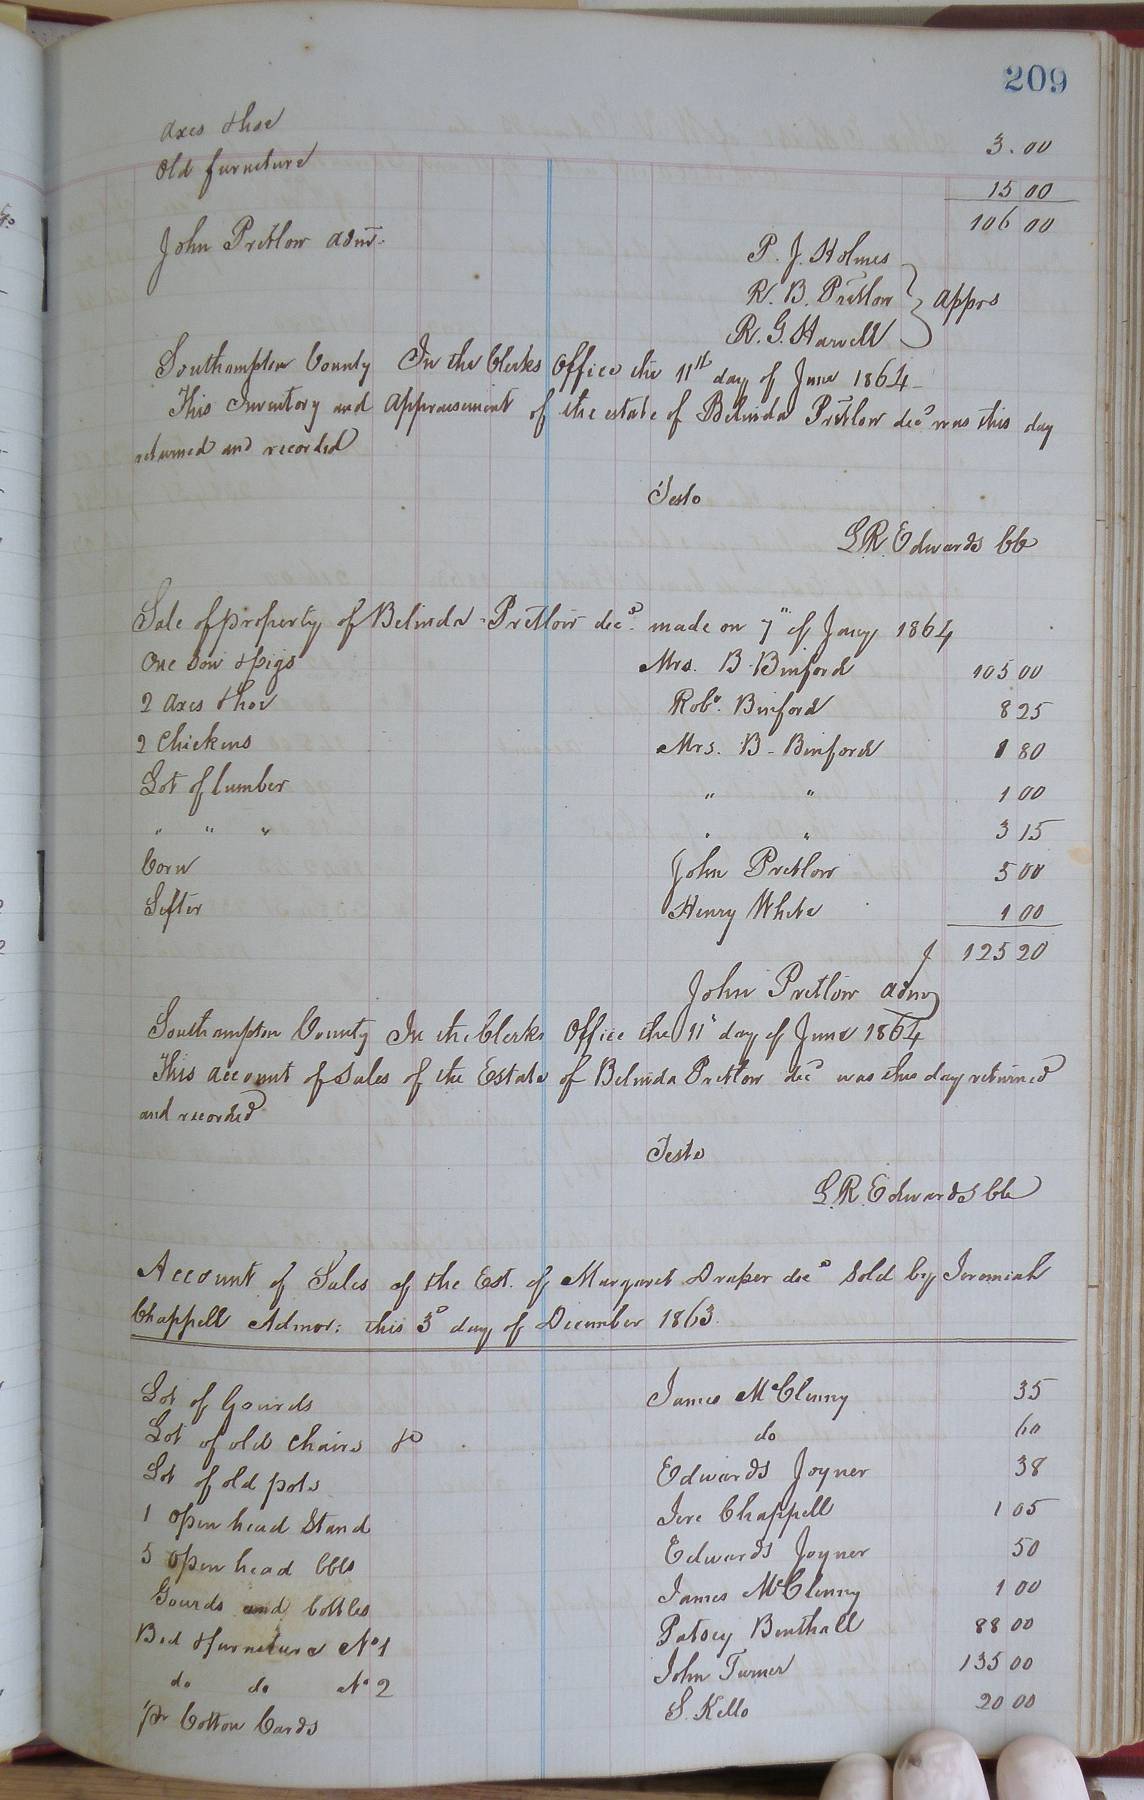 209
axes & hoe 3.00
Old furniture 15 00
106 00
John Pretlow admr.
P. J. Holmes
R. B. Pretlow } apprs
R. G. Harvell
Southampton County In the Clerks Office the 11th day of June 1864
This Inventory and Appraisement of the estate of Belinda Pretlow decd was this day
returned and recorded
Teste
L. R. Edwards CC
Sale of property of Belinda Pretlow decd. made on 7" of Jany 1864
One Sow & pigs Mrs. B. Binford 105 00
2 axes & hoe Robt. Binford 8 25
2 Chickens Mrs. B. Binford 1 80
Lot of lumber " " 1 00
" " " " " 3 15
Corn John Pretlow 5 00
Sifter Henry White 1 00
$ 125 20
John Pretlow admr
Southampton County In the Clerks Office the 11" day of June 1864
This account of Sales of the Estate of Belinda Pretlow decd was this day returned
and recorded
Teste
L. R. Edwards Clk
Account of Sales of the Est. of Margaret Draper decd Sold by Jeremiah
Chappell Admor: this 3d day of December 1863.
Lot of Gourds James McClenny 35
Lot of old chairs &c do 60
Lot of old pots Edwards Joyner 38
1 open head Stand Jere Chappell 1 05
5 open head bbls Edwards Joyner 50
Gourds and bottles James McClenny 1 00
Bed & furniture No 1 Patsey Benthall 88 00
do do No 2 John Turner 135 00
1 pr Cotton Cards S. Kello 20 00